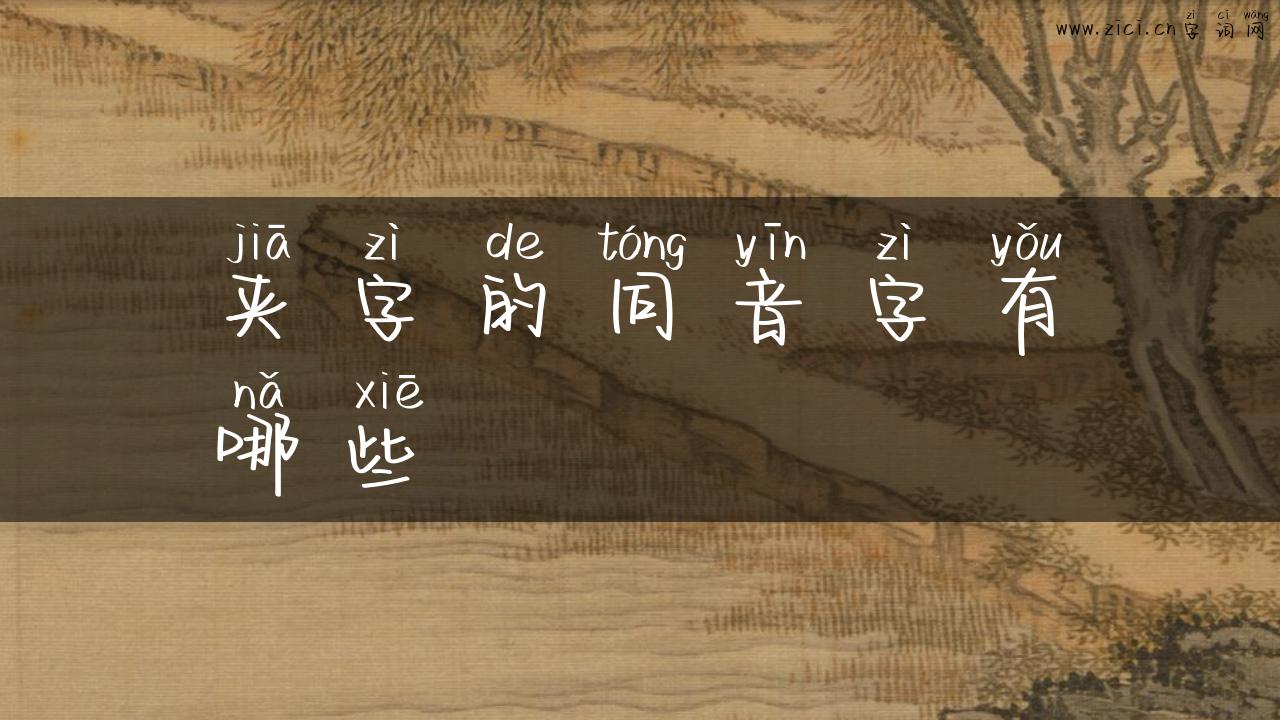 zì cí wǎng
www.zici.cn字词网
jiā zì de tóng yīn zì yǒu
夹字的同音字有
nǎ xiē
哪些